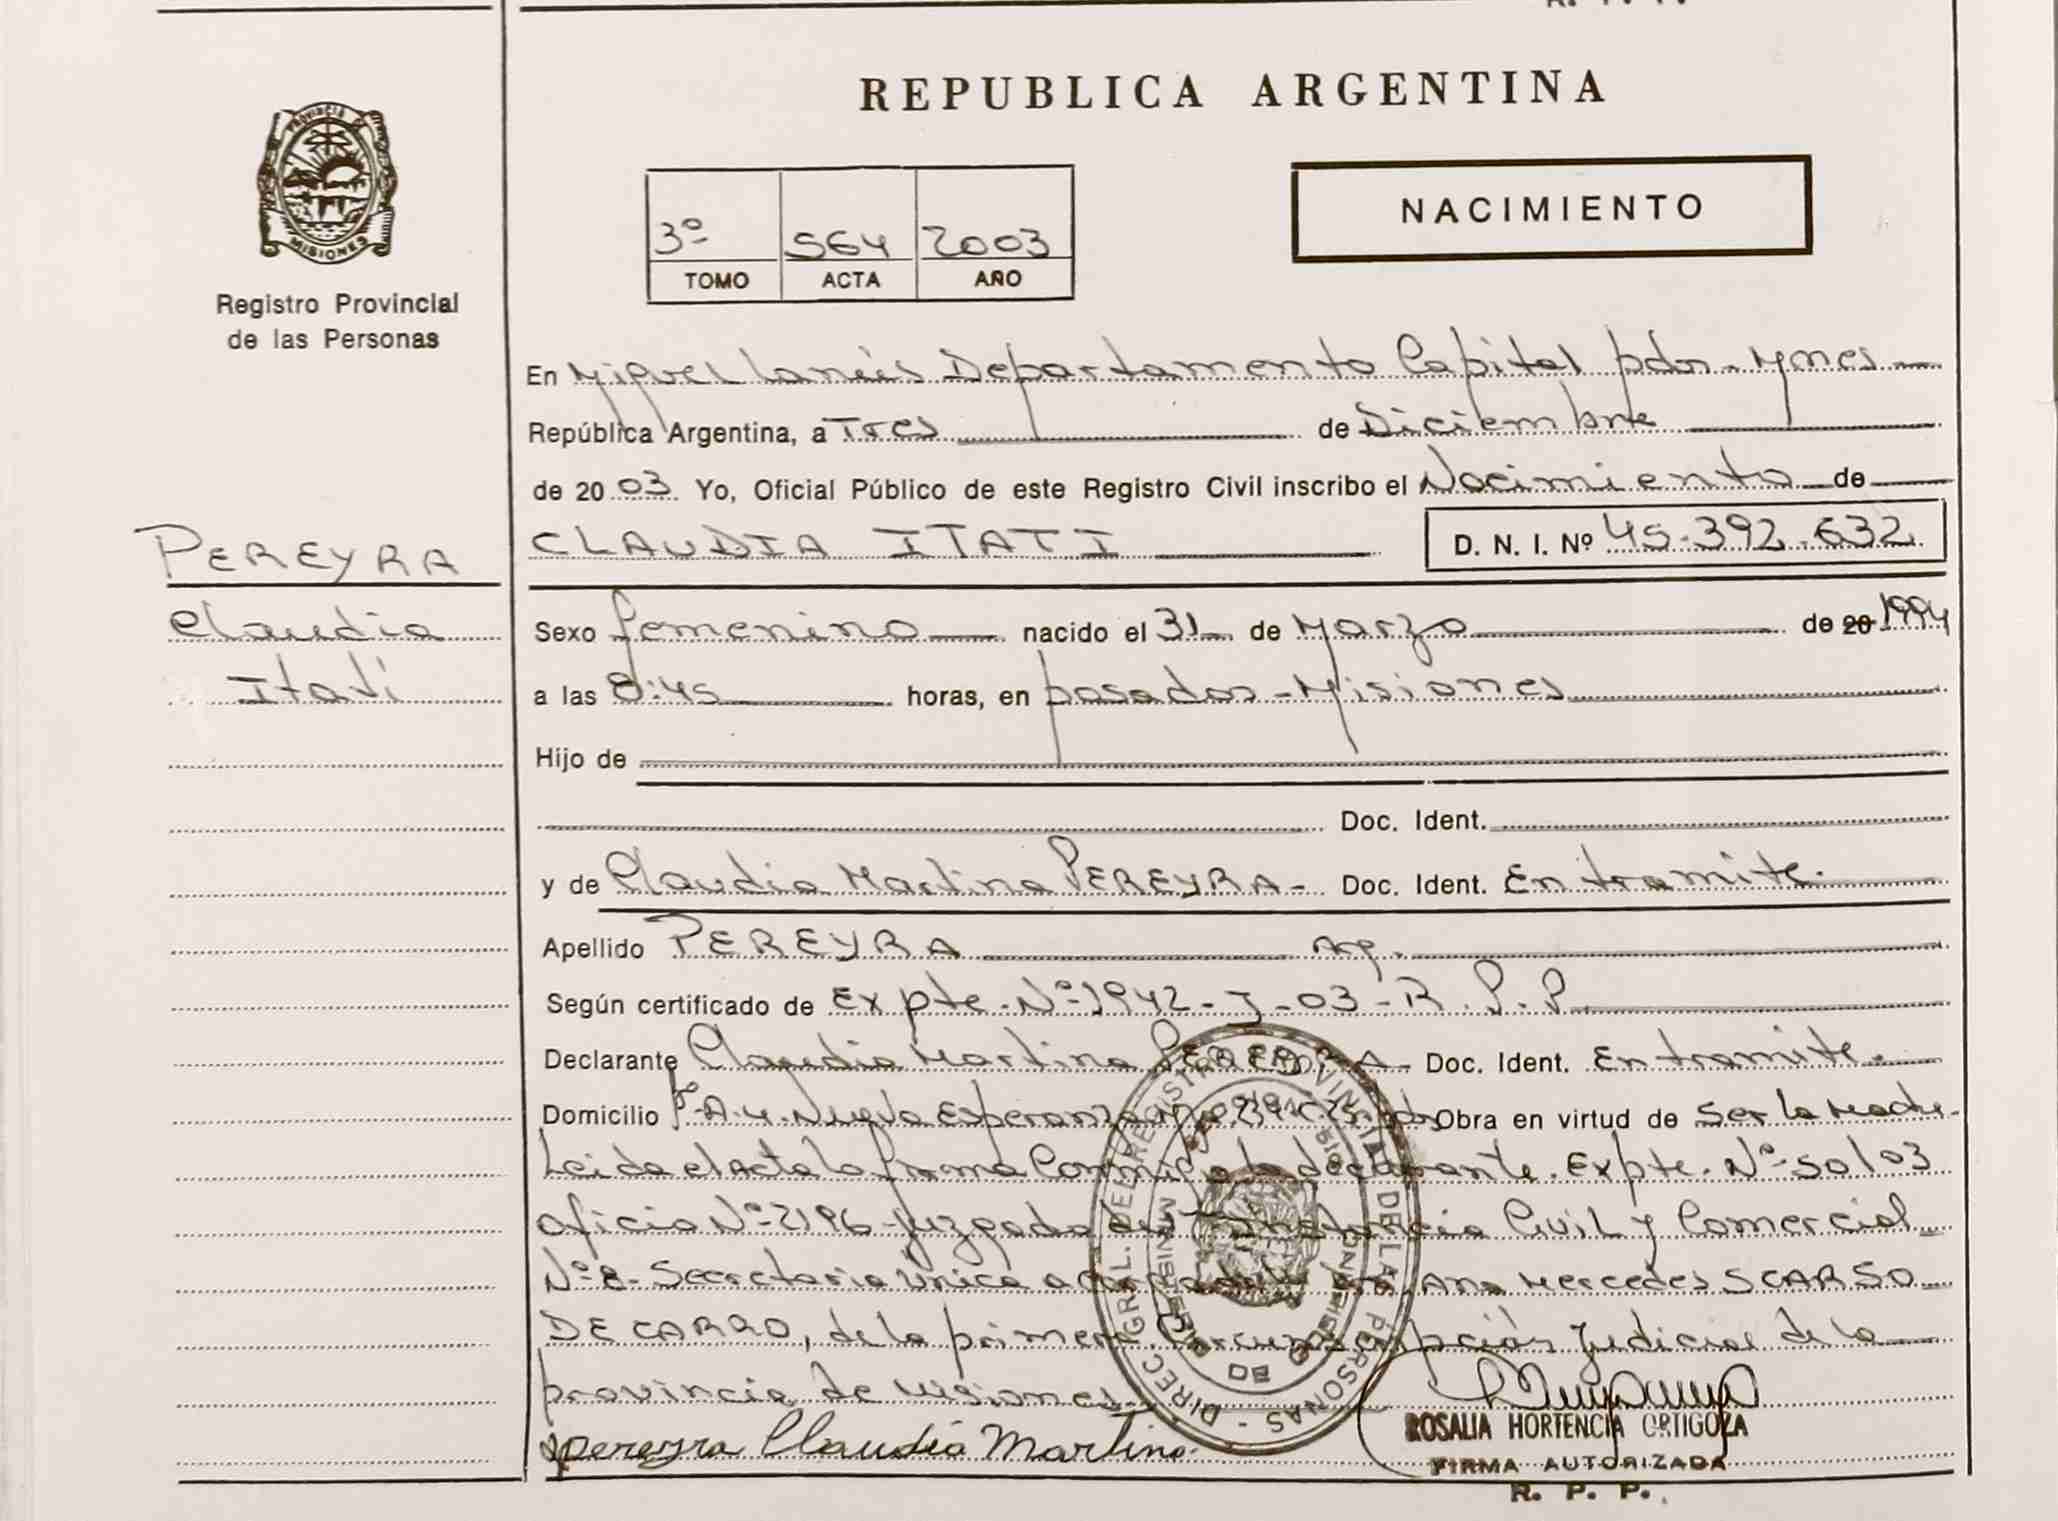 R. P. P.
REPUBLICA ARGENTINA
PROVINCIA DE MISIONES
Registro Provincial
de las Personas
3º 564 2003
TOMO ACTA AÑO
NACIMIENTO
En Miguel Lanús Departamento Capital pdas. Mnes
República Argentina, a Tres de Diciembre
de 2003 Yo, Oficial Público de este Registro Civil inscribo el Nacimiento de
CLAUDIA ITATI D. N. I. Nº 45.392.632
PEREYRA
Claudia
Itatí
Sexo femenino nacido el 31 de Marzo de 20 1994
a las 8:45 horas, en posadas - Misiones
Hijo de
Doc. Ident.
y de Claudia Martina PEREYRA - Doc. Ident. En tramite.
Apellido PEREYRA Arg.
Según certificado de Expte. Nº 1942-J-03-R.P.P.
Declarante Claudia Martina PEREYRA - Doc. Ident. En tramite.
Domicilio Nueva Esperanza Obra en virtud de ser la Madre
Leida el Acta la firma Conmigo la declarante. Expte. Nº 50/03
oficio Nº 2196 Juzgado de Instancia Civil y Comercial
Nº 8 - Secretaria Unica a cargo de la Ana Mercedes SCARSO
DE CARRO, de la primera Circunscripción Judicial de la
provincia de Misiones.
pereyra Claudia Martina
DIREC. GRAL. DEL REGISTRO PROVINCIAL DE LAS PERSONAS
ROSALIA HORTENCIA ORTIGOZA
FIRMA AUTORIZADA
R. P. P.